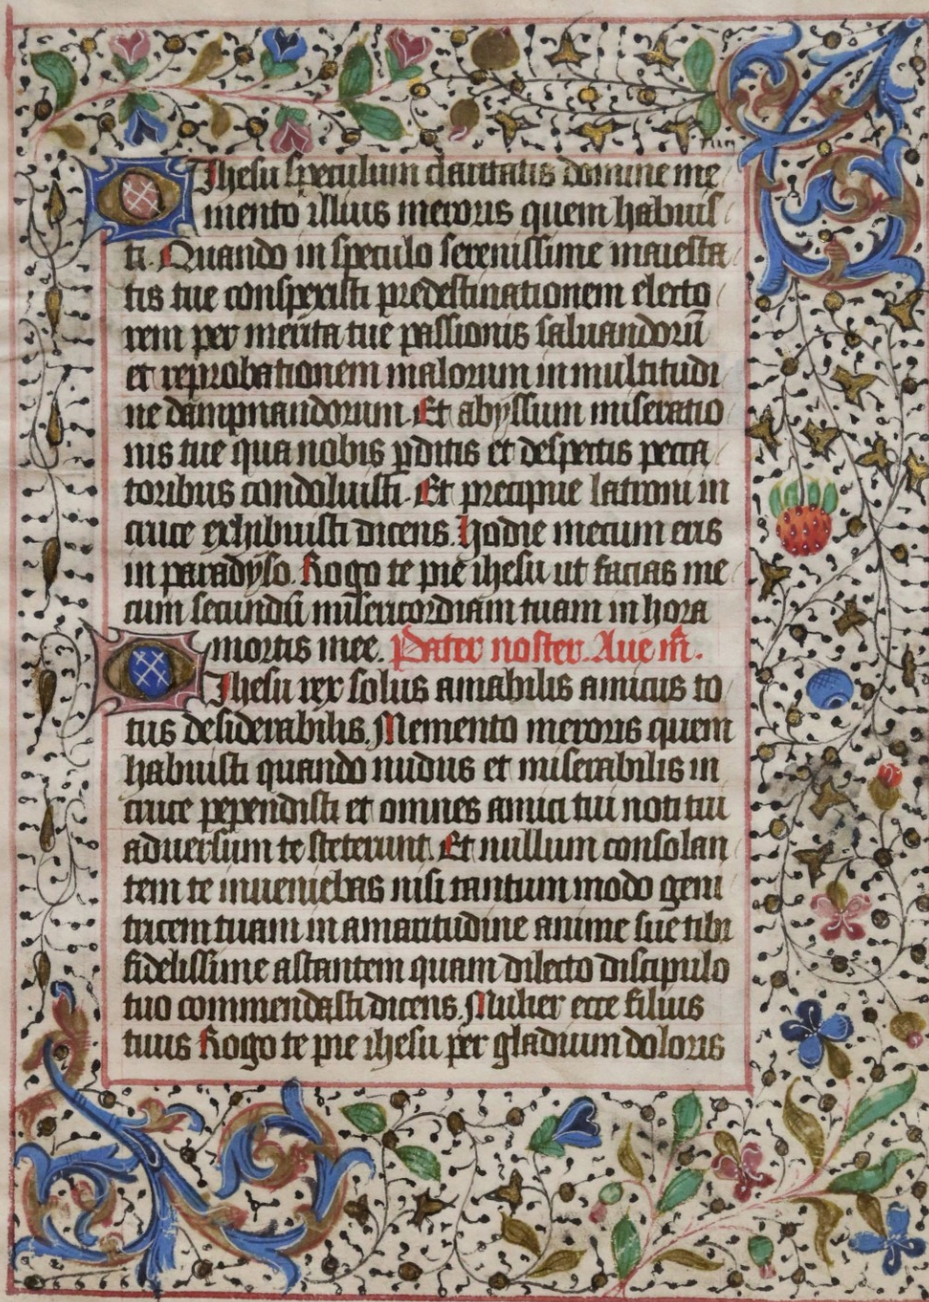 O Ihesu speculum claritatis domine me
mento illius meroris quem habuis
ti. Quando in speculo serenissime maiesta
tis tue conspexisti predestinationem electo
rem per merita tue passionis saluandorū
et reprobationem malorum in multitudi
ne dampnandorum. Et abyssum miseratio
nis tue qua nobis p̱ditis et despertis pecca
toribus condoluisti. Et precipue latroni in
cruce exhibuisti dicens. Hodie mecum eris
in paradyso. Rogo te pie ihesu ut facias me
cum secundū misericordiam tuam in hora
mortis mee. Pater noster. Aue m̄.
O Ihesu rex solus amabilis amicus to
tus desiderabilis. Memento meroris quem
habuisti quando nudus et miserabilis in
cruce pependisti et omnes amici tui noti tui
aduersum te steterunt. Et nullum consolan
tem te inueniebas nisi tantum modo geni
tricem tuam in amaritudine anime sue tibi
fidelissime astantem quam dilecto discipulo
tuo commendasti dicens. Mulier ecce filius
tuus Rogo te pie ihesu per gladium doloris